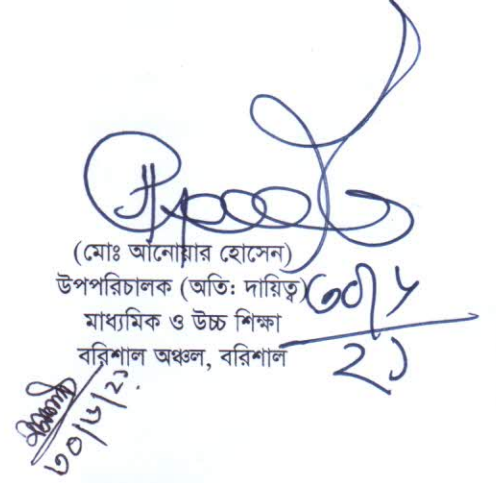 (মোঃ আনোয়ার হোসেন)
উপপরিচালক (অতি: দায়িত্ব)
মাধ্যমিক ও উচ্চ শিক্ষা
বরিশাল অঞ্চল, বরিশাল